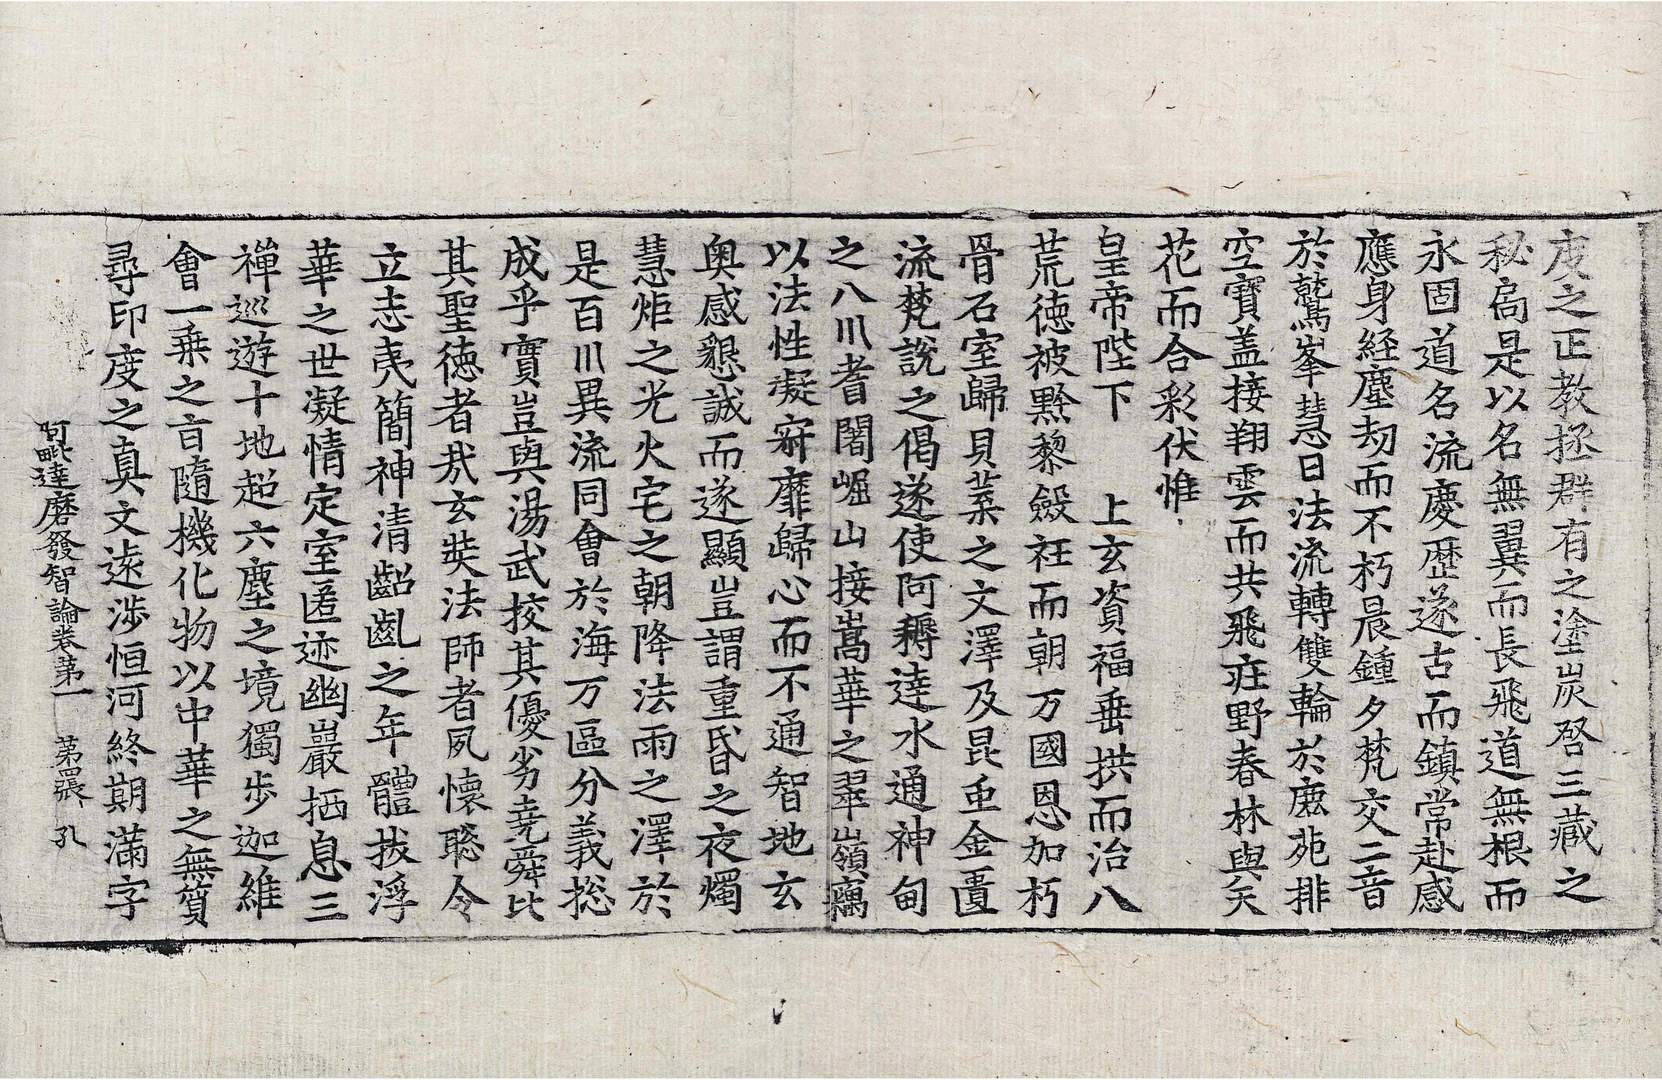 度之正教拯群有之塗炭啓三藏之
秘扃是以名無翼而長飛道無根而
永固道名流慶歷遂古而鎮常赴感
應身經塵劫而不朽晨鍾夕梵交二音
於鷲峯慧日法流轉雙輪於鹿苑排
空寶盖接翔雲而共飛庄野春林與天
花而合彩伏惟
皇帝陛下 上玄資福垂拱而治八
荒德被黔黎斂衽而朝万國恩加朽
骨石室歸貝葉之文澤及昆虫金匱
流梵說之偈遂使阿耨達水通神甸
之八川耆闍崛山接嵩華之翠嶺竊
以法性凝寂靡歸心而不通智地玄
奥感懇誠而遂顯豈謂重昏之夜燭
慧炬之光火宅之朝降法雨之澤於
是百川異流同會於海万區分義揔
成乎實豈與湯武挍其優劣堯舜比
其聖德者哉玄奘法師者夙懷聡令
立志夷簡神清齠齓之年體拔浮
華之世凝情定室匿迹幽巖栖息三
禅巡遊十地超六塵之境獨步迦維
會一乗之旨隨機化物以中華之無質
尋印度之真文遠涉恒河終期滿字
阿毗達磨發智論卷第一 第四張 孔